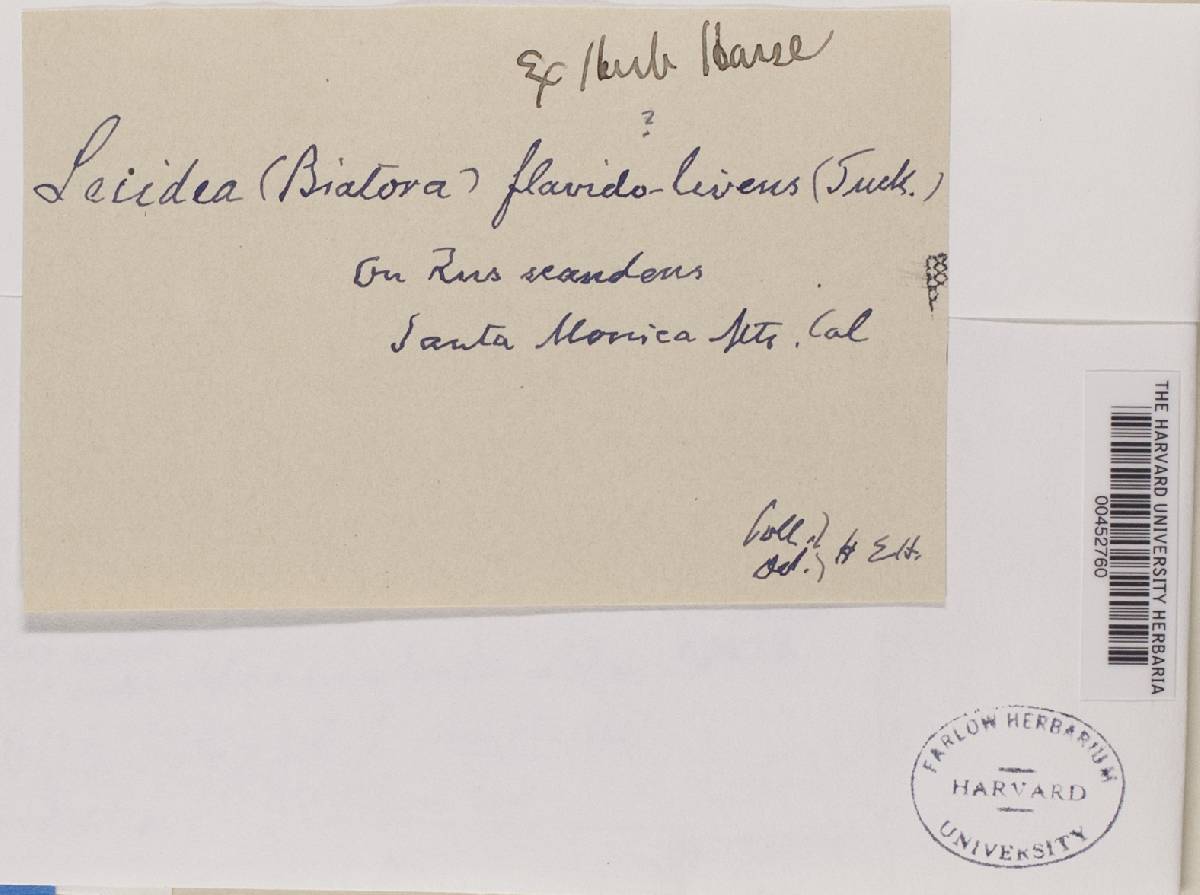 Ex Herb Hasse
?
Lecidea (Biatora) flavido-livens (Tuck.)
On Rus scandens
Santa Monica Mts. Cal
Coll. }
Det. } H E H.
THE HARVARD UNIVERSITY HERBARIA
00452760
FARLOW HERBARIUM
HARVARD
UNIVERSITY